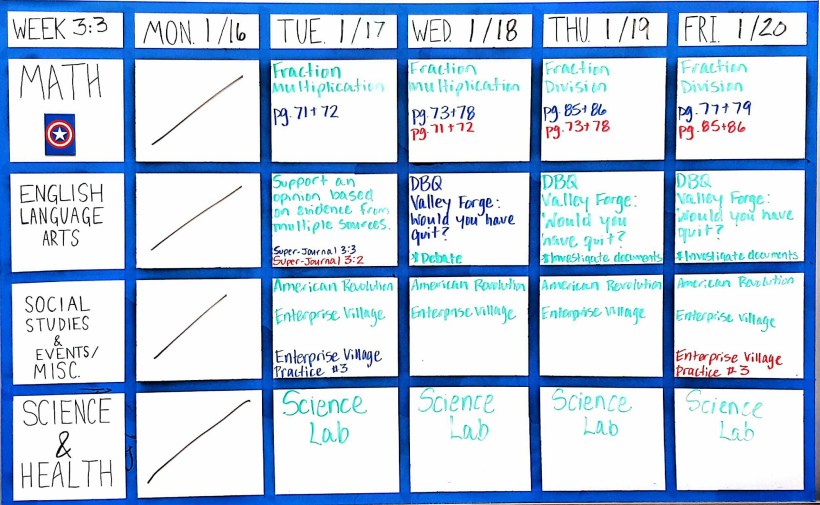 WEEK 3:3
MON. 1/16
TUE. 1/17
WED. 1/18
THU. 1/19
FRI. 1/20
MATH
Fraction
Multiplication
pg. 71+72
Fraction
Multiplication
pg. 73+78
pg. 71+72
Fraction
Division
pg. 85+86
pg. 73+78
Fraction
Division
pg. 77+79
pg. 85+86
ENGLISH
LANGUAGE
ARTS
Support an
opinion based
on evidence from
multiple sources.
Super-Journal 3:3
Super-Journal 3:2
DBQ
Valley Forge:
Would you have
quit?
*Debate
DBQ
Valley Forge:
Would you
have quit?
*Investigate documents
DBQ
Valley Forge:
Would you have
quit?
*Investigate documents
SOCIAL
STUDIES
&
EVENTS/
MISC.
American Revolution
Enterprise Village
Enterprise Village
Practice #3
American Revolution
Enterprise Village
American Revolution
Enterprise Village
American Revolution
Enterprise Village
Enterprise Village
Practice #3
SCIENCE
&
HEALTH
Science
Lab
Science
Lab
Science
Lab
Science
Lab